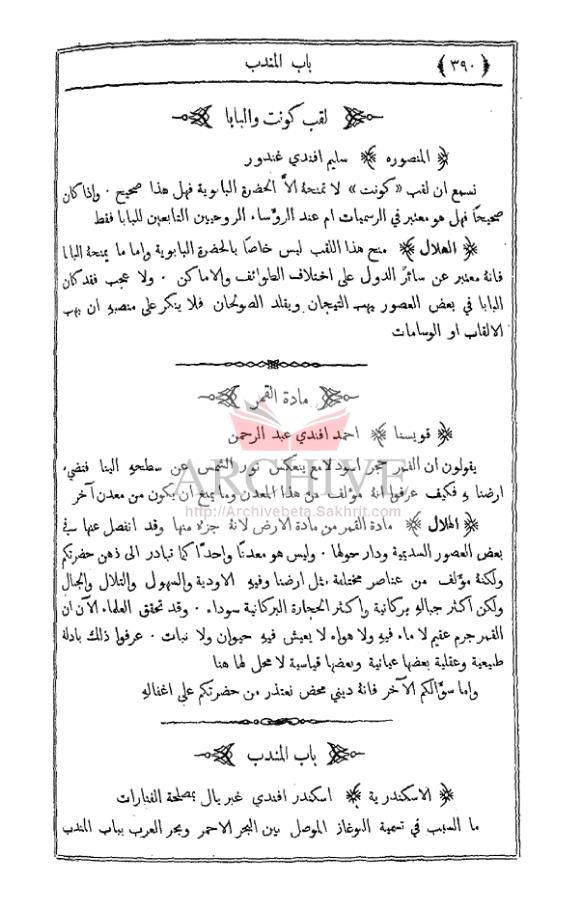 ﴿ ٣٩٠ ﴾ باب المندب
لقب كونت والبابا
﴿ المنصوره ﴾ سليم افندي غندور
نسمع ان لقب «كونت» لا تمنحهُ الاَّ الحضرة البابوية فهل هذا صحيح . واذا كان
صحيحًا فهل هو معتبر في الرسميات ام عند الروٴساء الروحيين التابعين للبابا فقط
﴿ الهلال ﴾ منح هذا اللقب ليس خاصًا بالحضرة البابوية واما ما يمنحهُ البابا
فانهُ معتبر عن سائر الدول على اختلاف الطوائف والاماكن . ولا عجب فقد كان
البابا في بعض العصور يهب التيجان ويقلد الصولجان فلا ينكر على منصبهِ ان يهب
الالقاب او الوسامات
مادة القمر
﴿ قويسنا ﴾ احمد افندي عبد الرحمن
يقولون ان القمر حجر اسود لامع ينعكس نور الشمس عن سطحهِ الينا فتضيء
ارضنا بهِ فكيف عرفوا انهُ مؤلف من هذا المعدن وما يمنع ان يكون من معدن آخر
﴿ الهلال ﴾ مادة القمر من مادة الارض لانهُ جزء منها وقد انفصل عنها في
بعض العصور السديمية ودار حولها . وليس هو معدنًا واحدًا كما تبادر الى ذهن حضرتكم
ولكنهُ موٴلف من عناصر مختلفة مثل ارضنا وفيهِ الاودية والسهول والتلال والجبال
ولكن اكثر جبالهِ بركانية واكثر الحجارة البركانية سوداء . وقد تحقق العلماء الآن ان
القمر جرم عقيم لا ماء فيهِ ولا هواء لا يعيش فيهِ حيوان ولا نبات . عرفوا ذلك بادلة
طبيعية وعقلية بعضها عيانية وبعضها قياسية لا محل لها هنا
واما سوٴالكم الآخر فانهُ ديني محض نعتذر من حضرتكم على اغفالهِ
باب المندب
﴿ الاسكندرية ﴾ اسكندر افندي غبريال بمصلحة الفنارات
ما السبب في تسمية البوغاز الموصل بين البحر الاحمر وبحر العرب بباب المندب
ARCHIVE
http://Archivebeta.Sakhrit.com